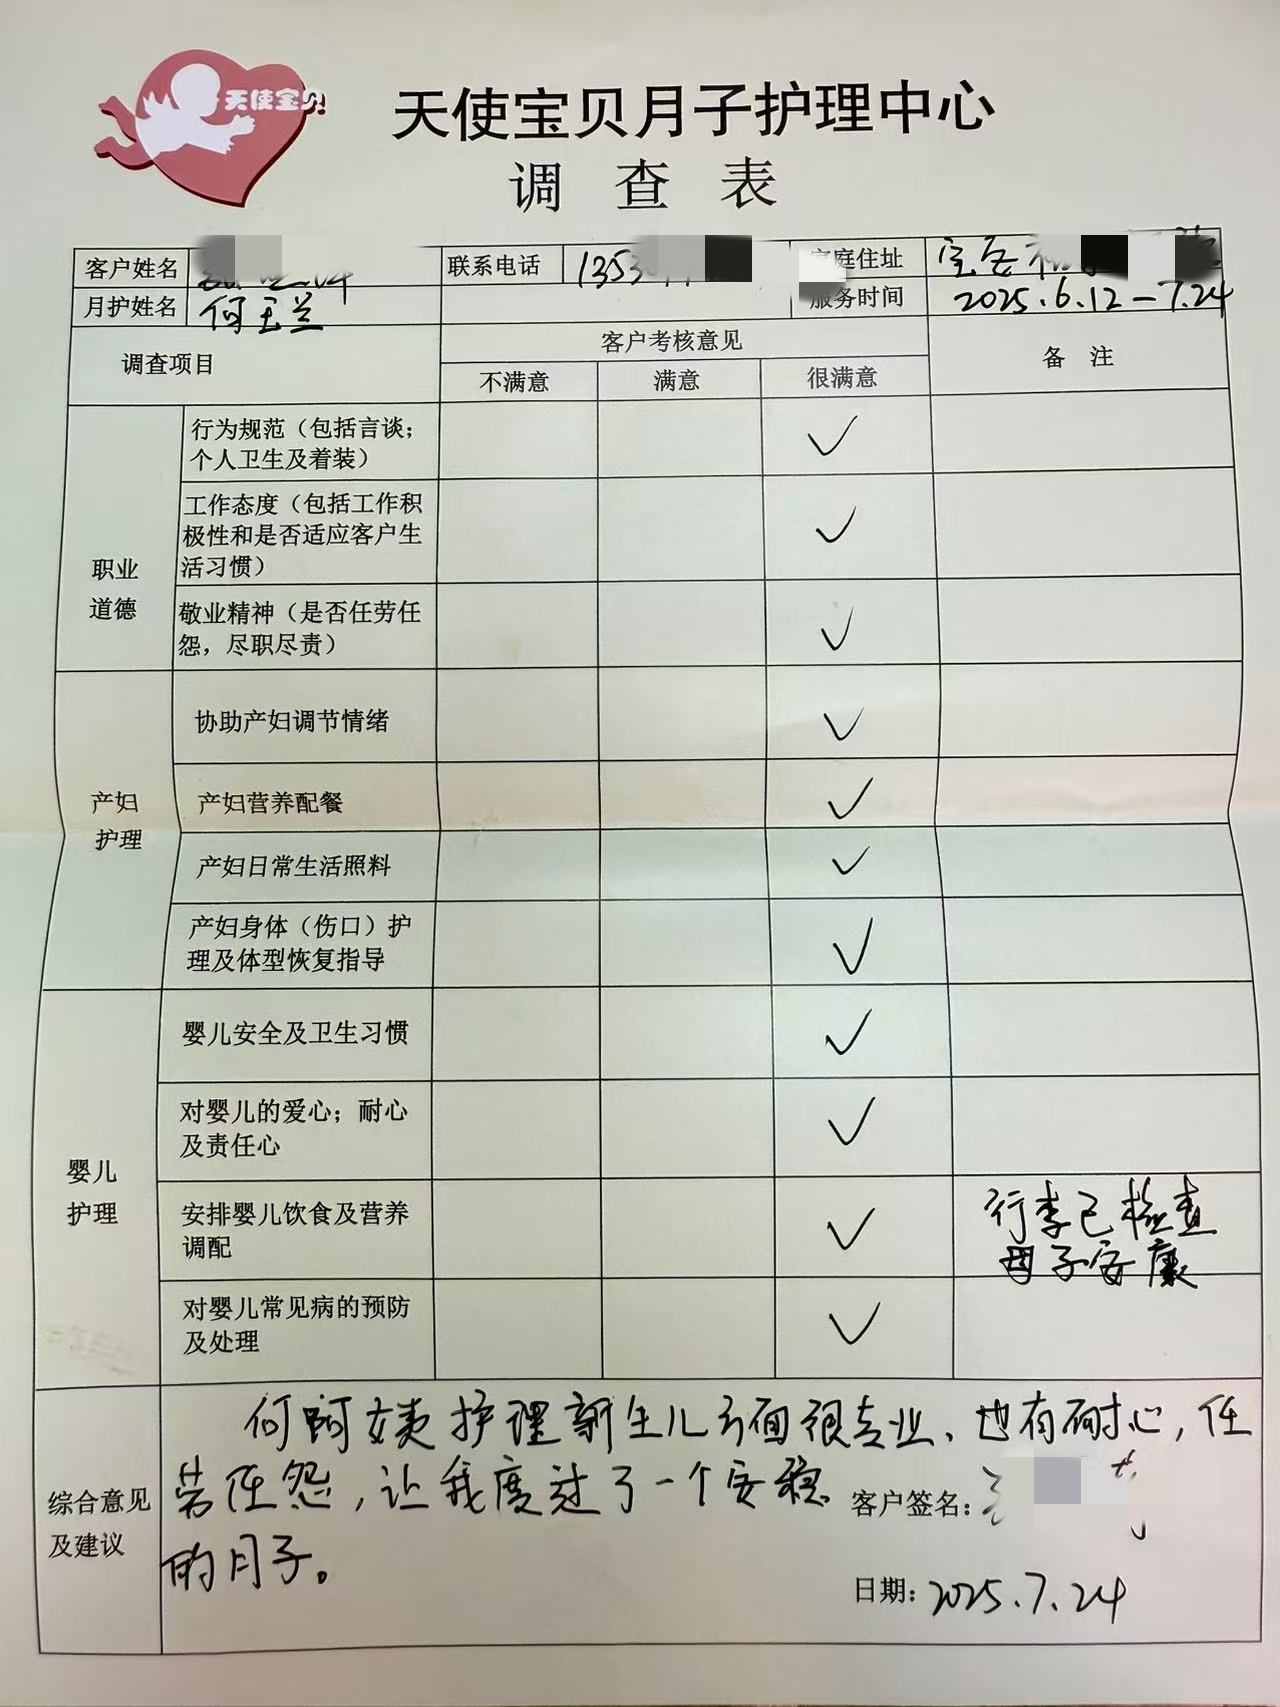 天使宝贝
天使宝贝月子护理中心
调 查 表
客户姓名 联系电话 庭住址
月护姓名 何玉兰 服务时间 2025.6.12-7.24
调查项目 客户考核意见 备 注
不满意 满意 很满意
职业
道德
行为规范（包括言谈；
个人卫生及着装） ✓
工作态度（包括工作积
极性和是否适应客户生
活习惯） ✓
敬业精神（是否任劳任
怨，尽职尽责） ✓
产妇
护理
协助产妇调节情绪 ✓
产妇营养配餐 ✓
产妇日常生活照料 ✓
产妇身体（伤口）护
理及体型恢复指导 ✓
婴儿
护理
婴儿安全及卫生习惯 ✓
对婴儿的爱心；耐心
及责任心 ✓
安排婴儿饮食及营养
调配 ✓
行李已检查
母子安康
对婴儿常见病的预防
及处理 ✓
综合意见
及建议
何阿姨护理新生儿方面很专业、也有耐心，任
劳任怨，让我度过了一个安稳
的月子。
客户签名：
日期：2025.7.24